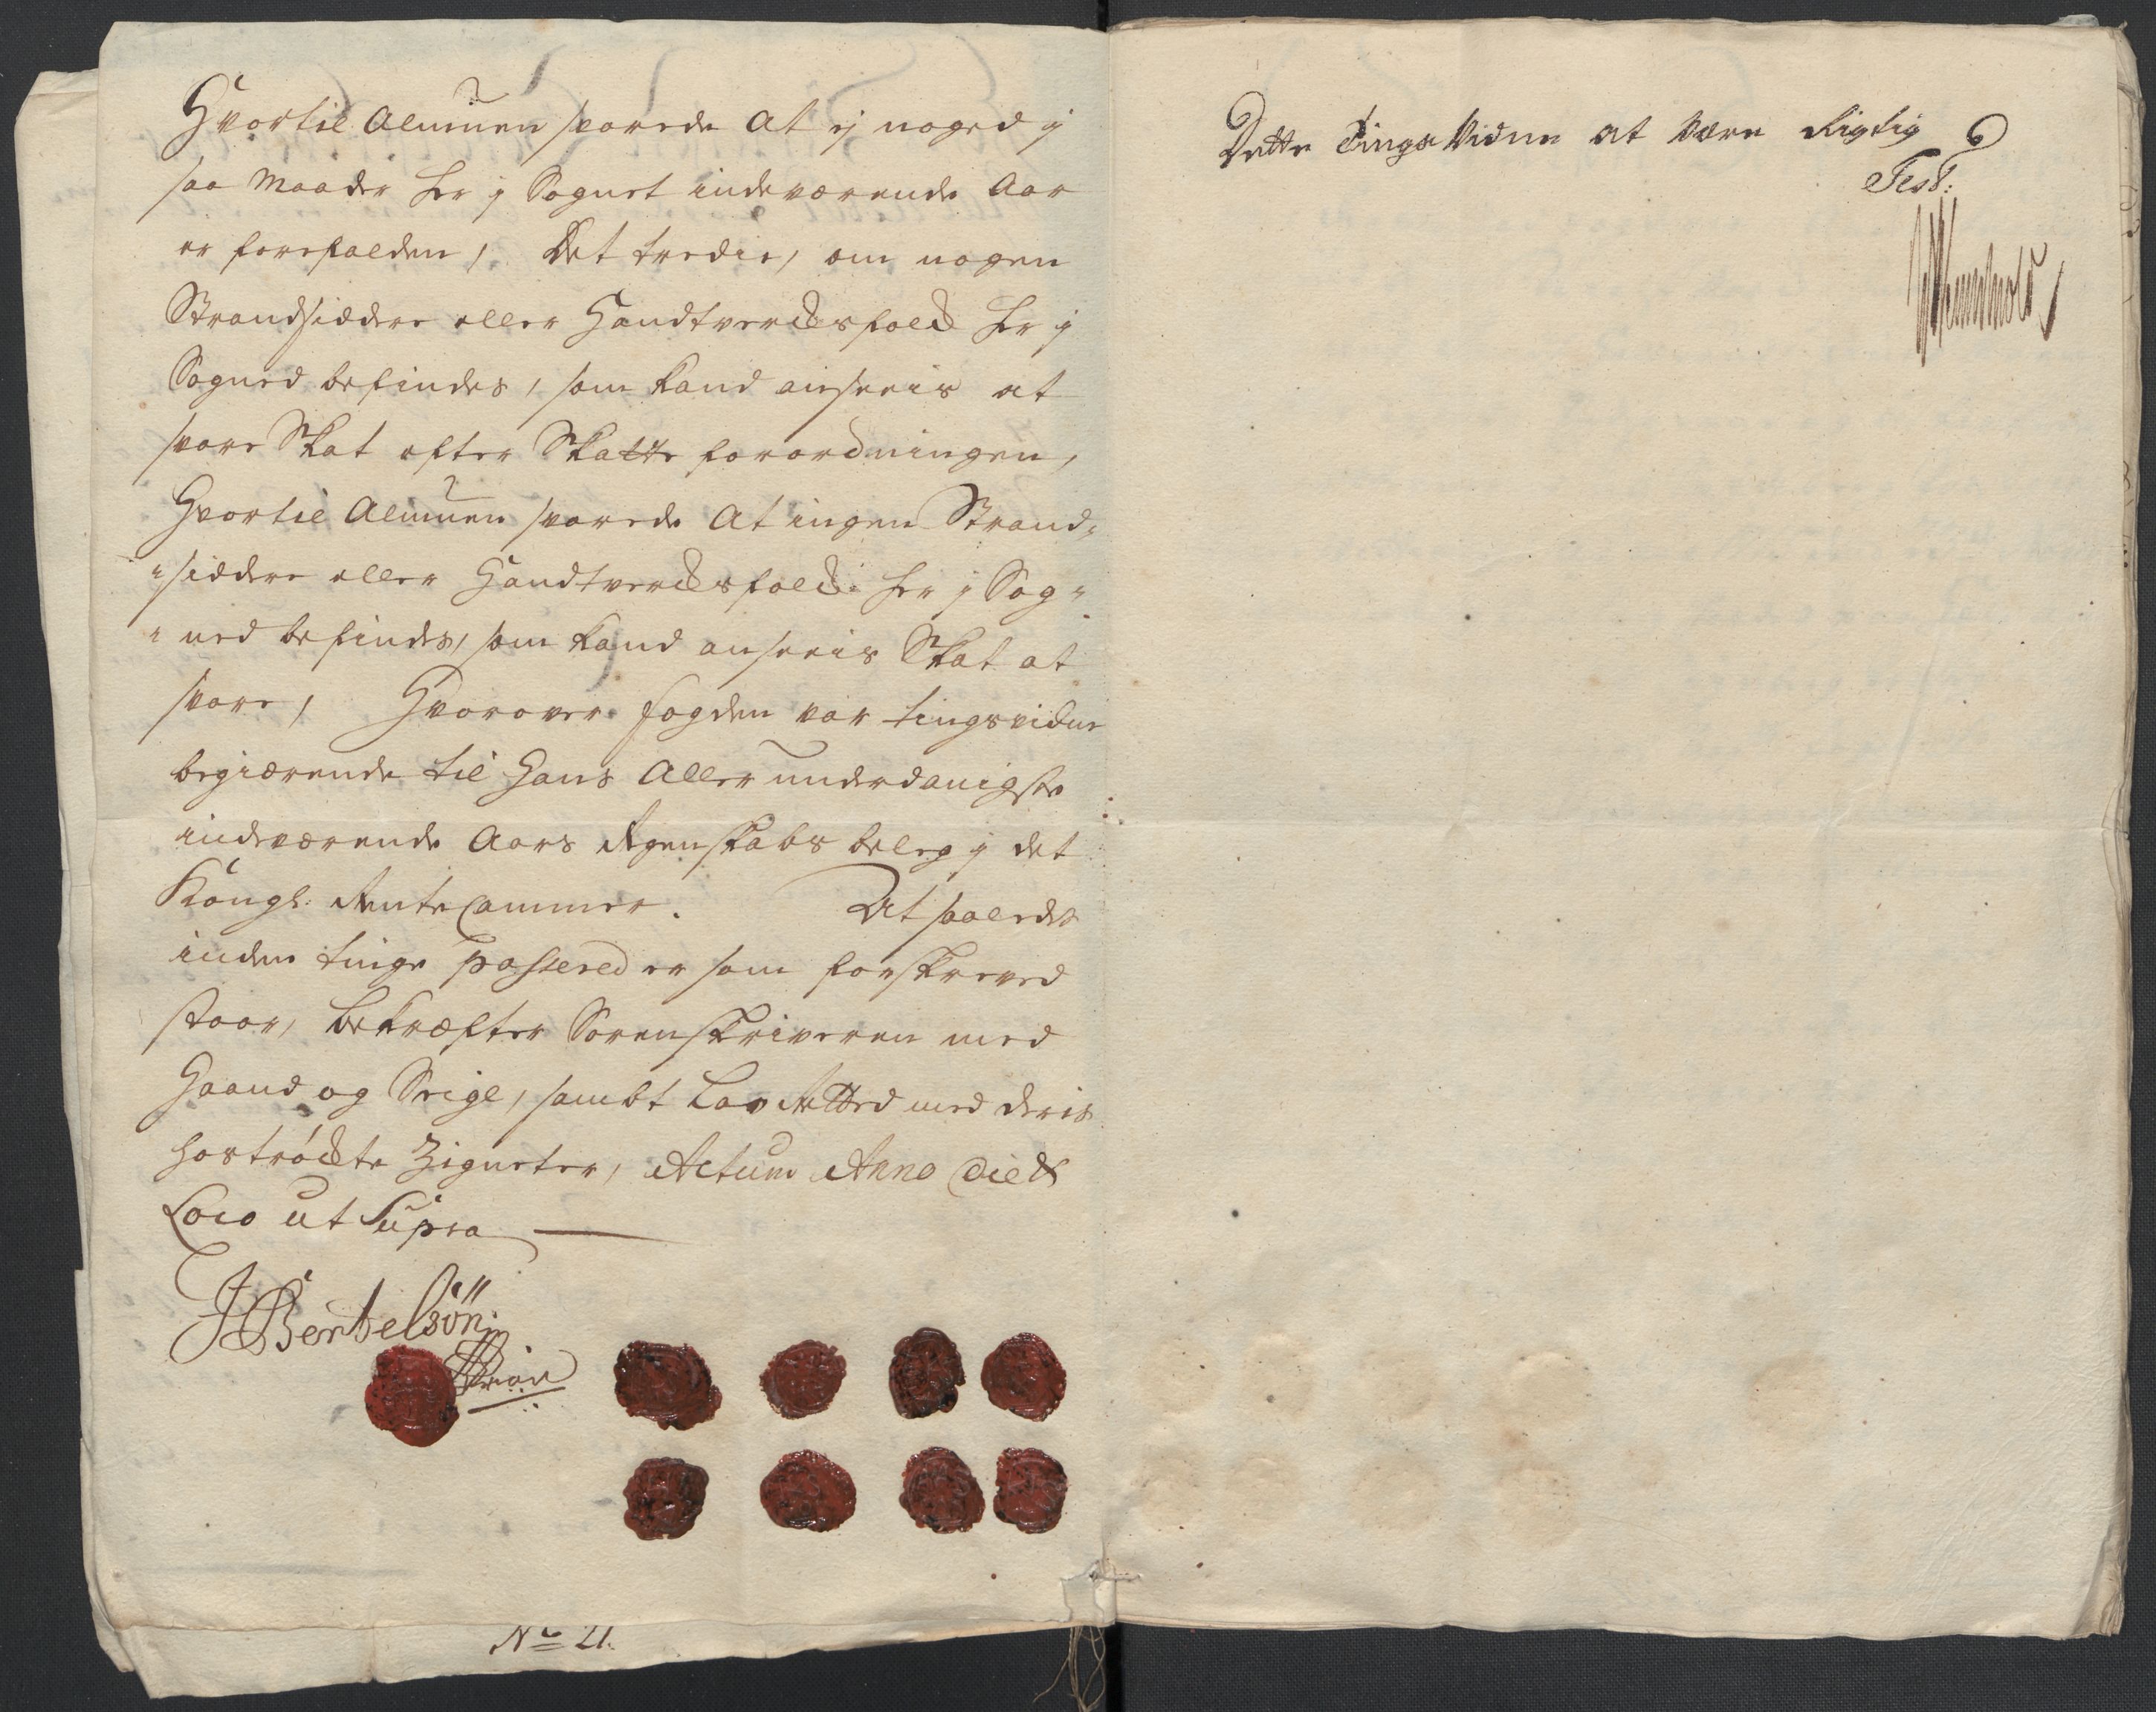 Hvortil Almuen svarede at ej noged j
saa maader her j Sognet indeværende Aar
er forefalden, Det tredie, om nogen
Strandsiddere eller Handtverchsfolch her j
Sogned befindes, som kand anseeis at
svare Skat efter Skatte forordningen,
Hvortil Almuen svarede At ingen Strand-
siddere eller Handtverchsfolch her j Sog-
ned befindes, som kand anseeis Skat at
svare, Hvorover fogden var tingsvidne
begiærende til Hans Allerunderdanigste
indeværende Aars Regenskabs beleg j det
Kongl: Rente Cammer. At saaledes
inden tinge passered er som forskreved
staar, bekræfter Sorenskriveren med
Haand og Seigl, sambt Lav Retted med deris
hostrøchte Zigneter, Actum Anno Die &
Loco ut Supra
JBertelsön
No 21.
Dette Tings Vidne at være Rigtig
Test: